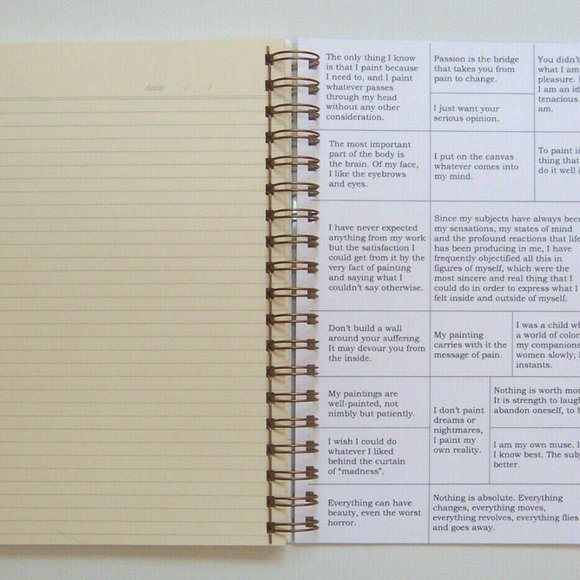 date / /
The only thing I know
is that I paint because
I need to, and I paint
whatever passes
through my head
without any other
consideration.
Passion is the bridge
that takes you from
pain to change.
I just want your
serious opinion.
You didn't
what I am
pleasure. I
I am an id
tenacious.
am.
The most important
part of the body is
the brain. Of my face,
I like the eyebrows
and eyes.
I put on the canvas
whatever comes into
my mind.
To paint is
thing that
do it well i
I have never expected
anything from my work
but the satisfaction I
could get from it by the
very fact of painting
and saying what I
couldn't say otherwise.
Since my subjects have always been
my sensations, my states of mind
and the profound reactions that life
has been producing in me, I have
frequently objectified all this in
figures of myself, which were the
most sincere and real thing that I
could do in order to express what I
felt inside and outside of myself.
Don't build a wall
around your suffering.
It may devour you from
the inside.
My painting
carries with it the
message of pain.
I was a child wh
a world of color
my companions
women slowly; i
instants.
My paintings are
well-painted, not
nimbly but patiently.
I wish I could do
whatever I liked
behind the curtain
of "madness".
I don't paint
dreams or
nightmares,
I paint my
own reality.
Nothing is worth mor
It is strength to laugh
abandon oneself, to b
I am my own muse. I
I know best. The subj
better.
Everything can have
beauty, even the worst
horror.
Nothing is absolute. Everything
changes, everything moves,
everything revolves, everything flies
and goes away.